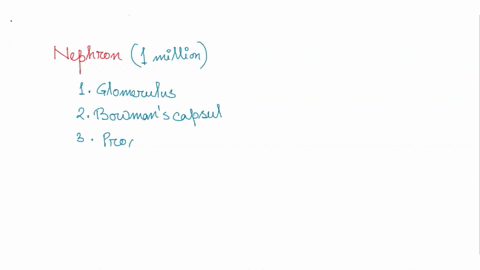 Nephron (1 million)
1. Glomerulus
2. Bowman's capsul
3. Pro